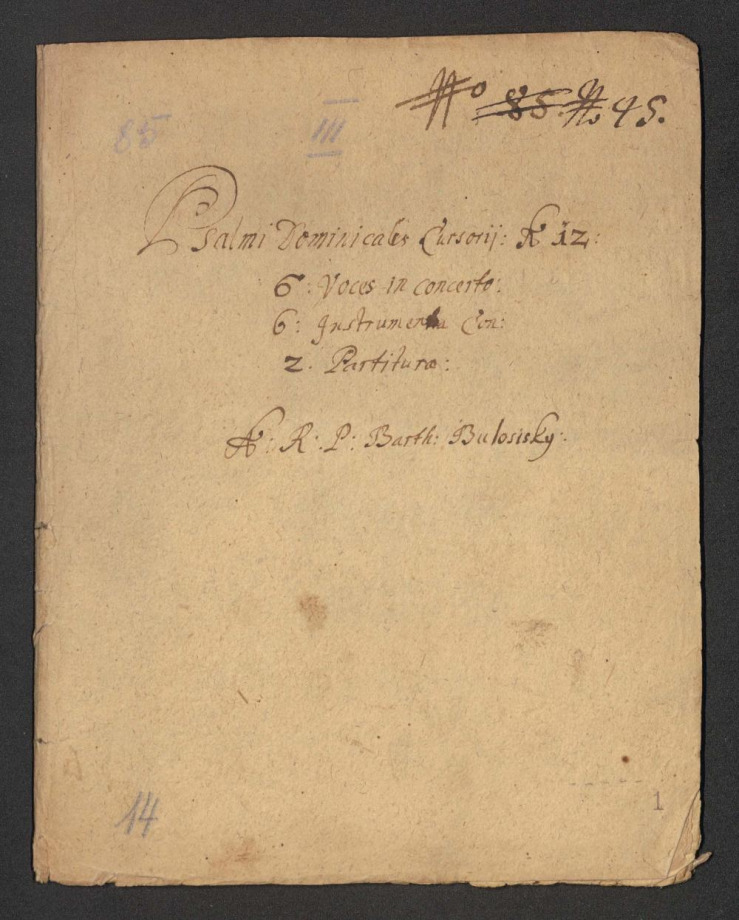 No 85. No 45.
85
III
Psalmi Dominicales Cursorij: A 12:
6: Voces in concerto:
6: Instrumenta Con:
2. Partituræ:
A: R: P: Barth: Bulosisky:
14
1